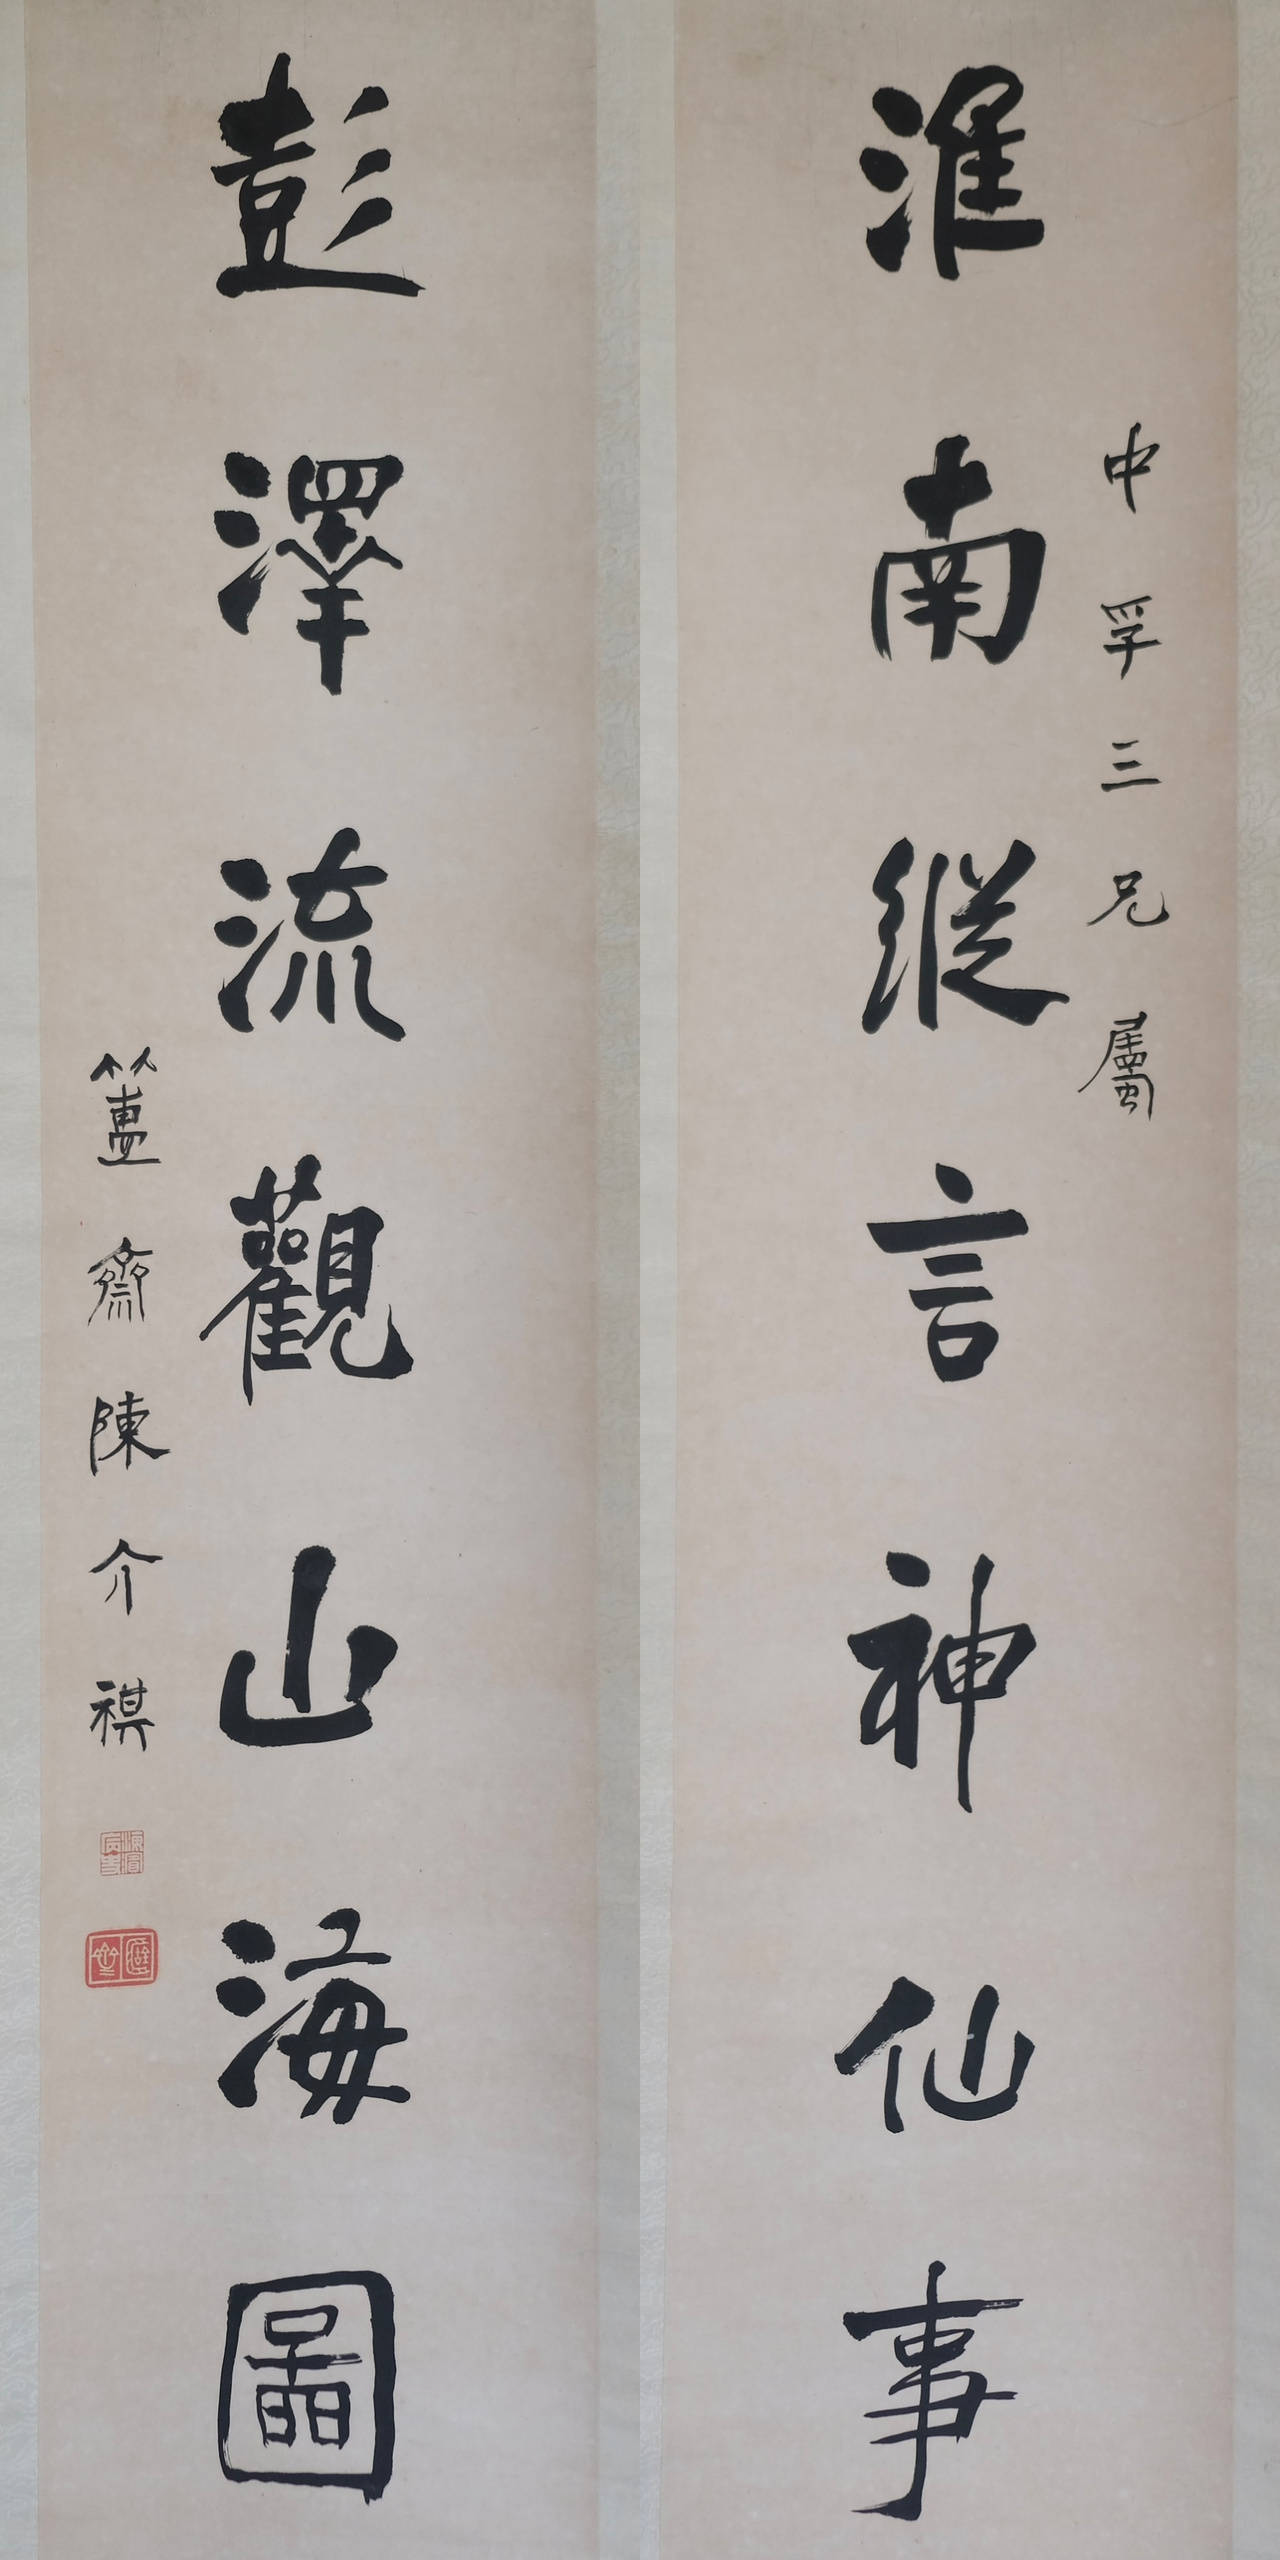 中孚三兄屬
淮南縱言神仙事
彭澤流觀山海圖
簠齋陳介祺